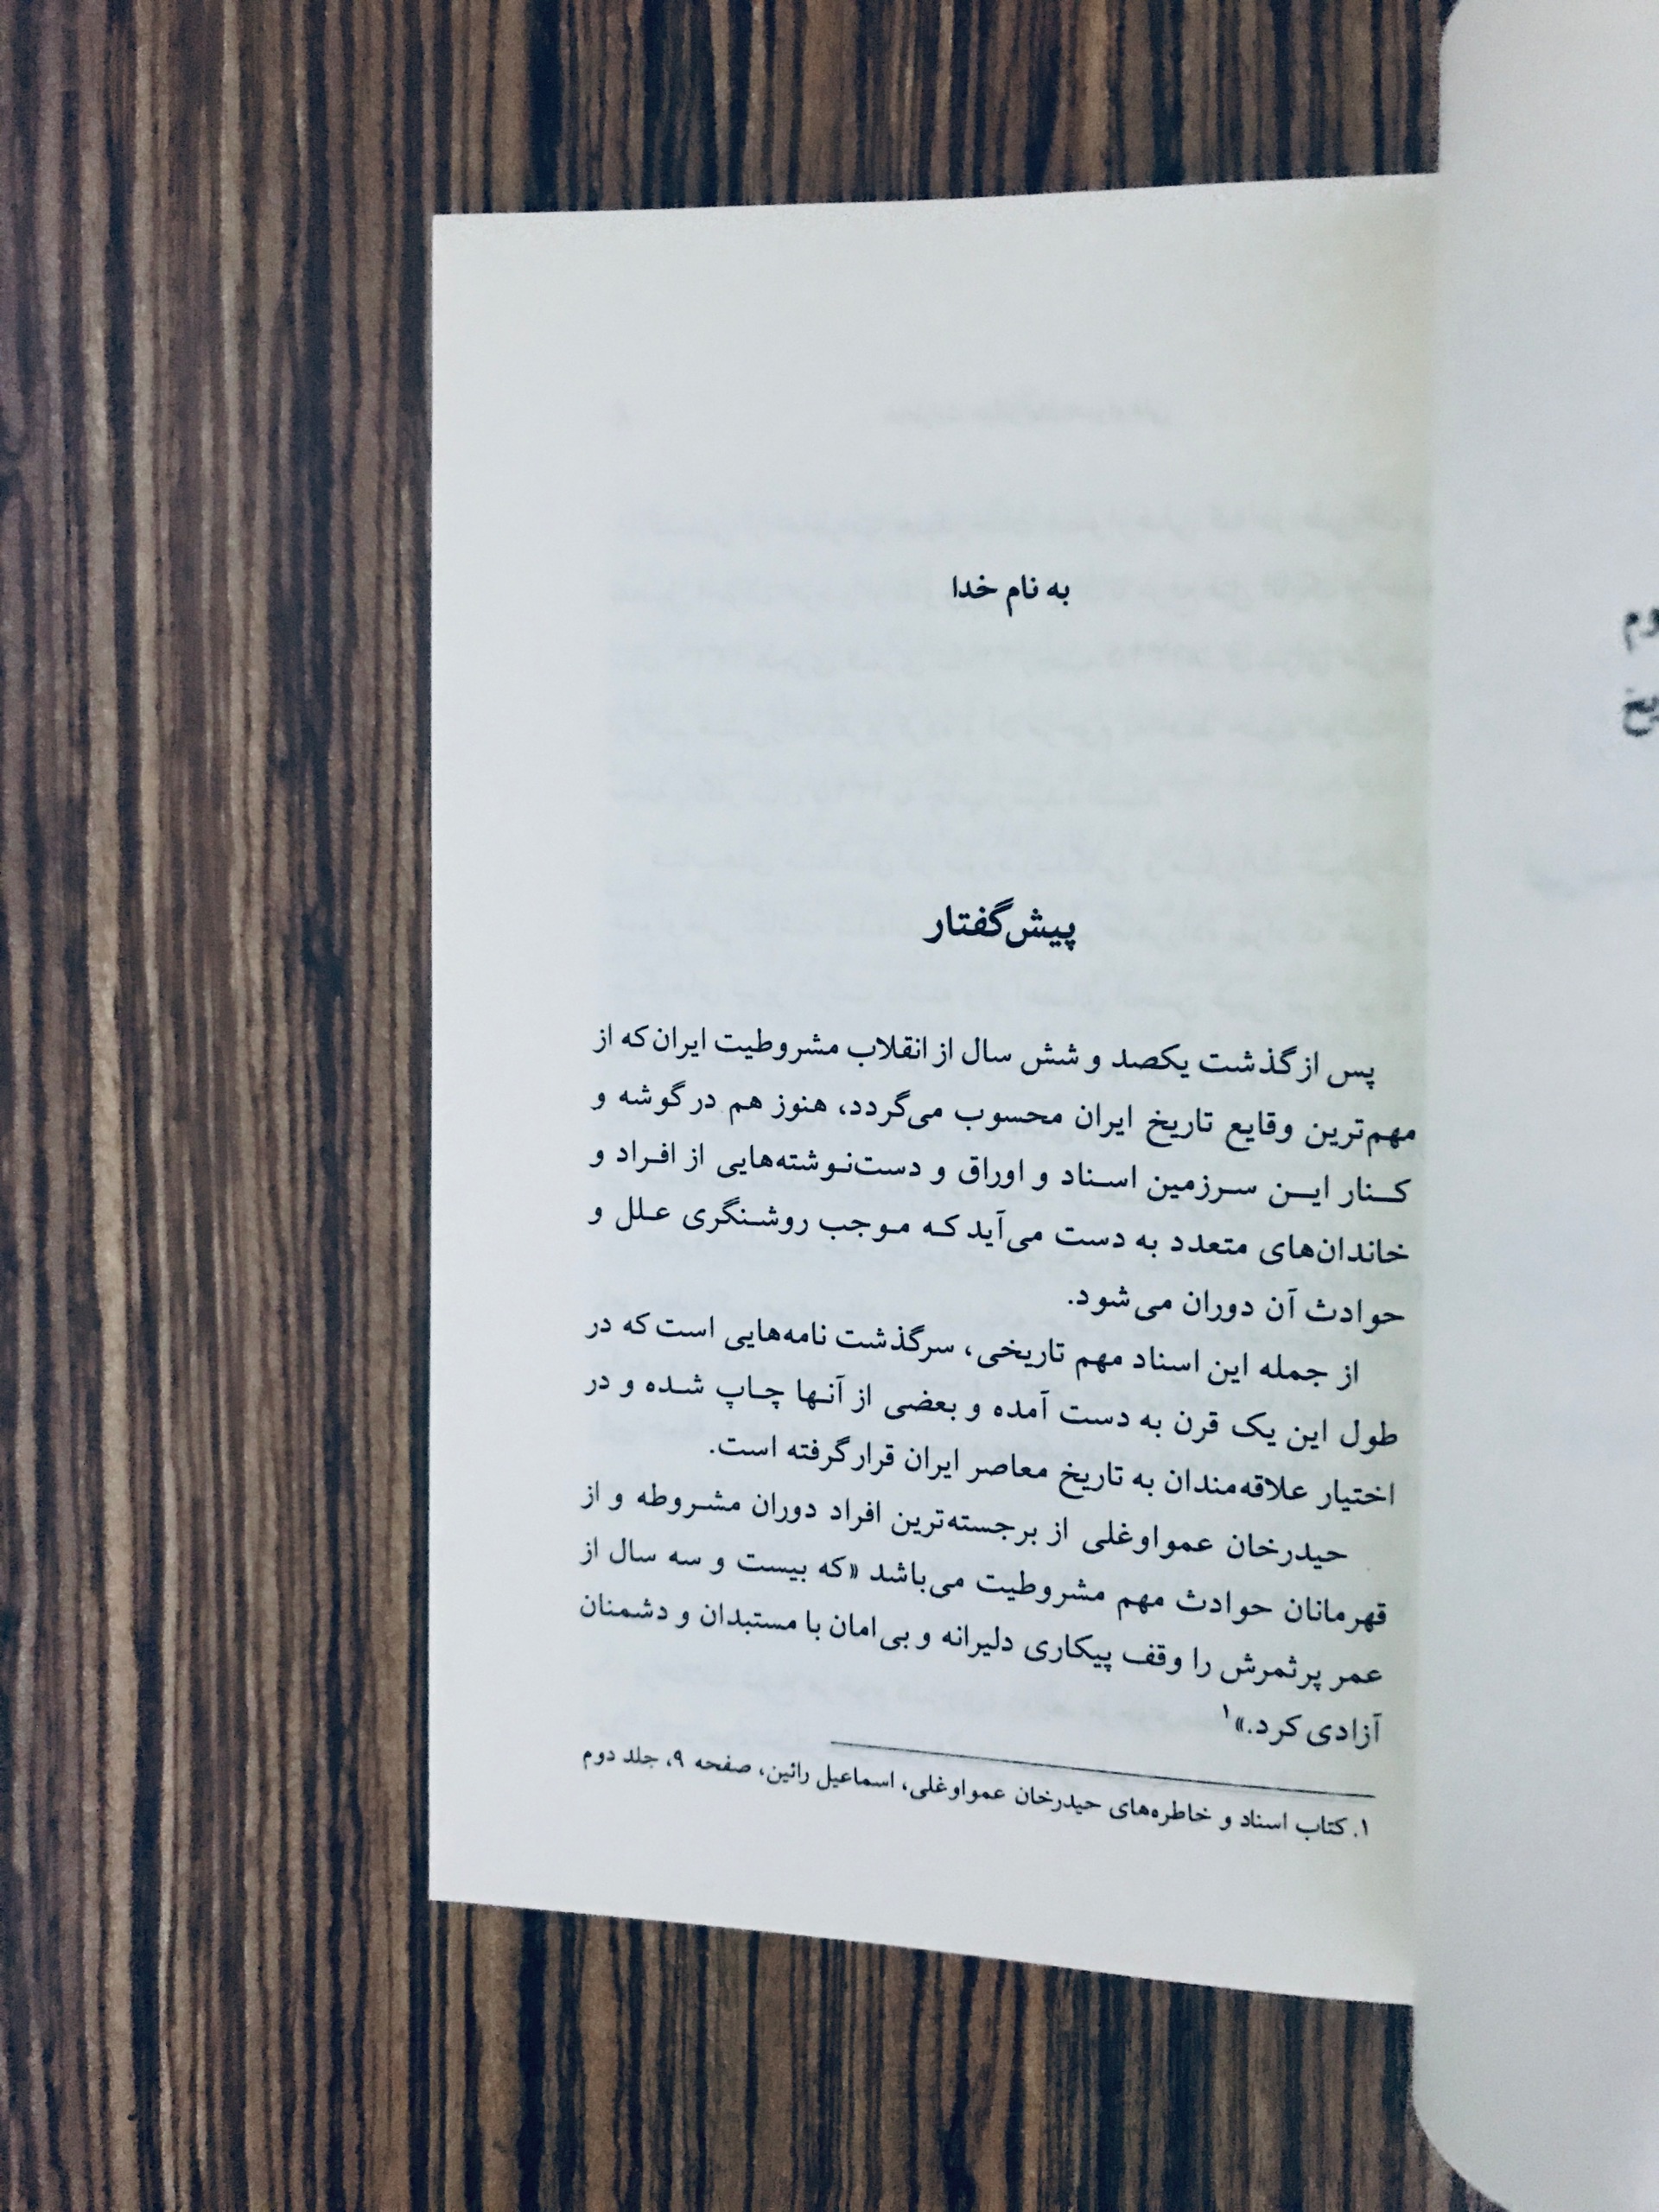 به نام خدا
پیش‌گفتار
پس از گذشت یکصد و شش سال از انقلاب مشروطیت ایران که از
مهم‌ترین وقایع تاریخ ایران محسوب می‌گردد، هنوز هم در گوشه و
کنار این سرزمین اسناد و اوراق و دست‌نوشته‌هایی از افراد و
خاندان‌های متعدد به دست می‌آید که موجب روشنگری علل و
حوادث آن دوران می‌شود.
از جمله این اسناد مهم تاریخی، سرگذشت نامه‌هایی است که در
طول این یک قرن به دست آمده و بعضی از آنها چاپ شده و در
اختیار علاقه‌مندان به تاریخ معاصر ایران قرار گرفته است.
حیدرخان عمواوغلی از برجسته‌ترین افراد دوران مشروطه و از
قهرمانان حوادث مهم مشروطیت می‌باشد «که بیست و سه سال از
عمر پرثمرش را وقف پیکاری دلیرانه و بی‌امان با مستبدان و دشمنان
آزادی کرد.»۱
۱. کتاب اسناد و خاطره‌های حیدرخان عمواوغلی، اسماعیل رائین، صفحه ۹، جلد دوم